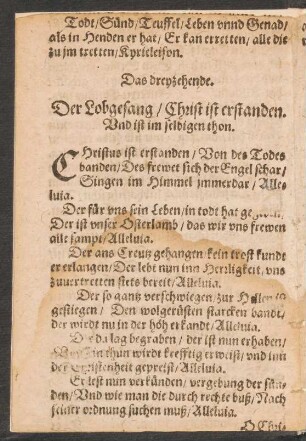 Todt/Sünd/Teuffel/Leben vnnd Genad/
als in Henden er hat/ Er kan erretten/ alle die
zu jm tretten/Kyrieleison.
Das dreyzehende.
Der Lobgesang / Christ ist erstanden.
Vnd ist im selbigen thon.
CHristus ist erstanden / Von des Todes
banden/Des frewet sich der Engel schar/
Singen im Himmel jmmerdar / Alle-
luia.
Der für vns sein Leben/in todt hat
Der ist vnser Osterlamb / das wir vns frewen
alle sampt/Alleluia.
Der ans Creutz gehangen kein trost kundt
er erlangen/Der lebt nun inn Herrligkeit, vns
zuuertretten stets bereit/Alleluia.
Der so gantz verschwiegen zur Hellen
gestiegen / Den wolgerüsten starcken bandt,
der wirdt nu in der höh erkandt/ Alleluia.
Der da lag begraben / der ist nun erhaben/
thun wirdt krefftig erweist/ vnd inn
der Christenheit gepreist/Alleluia.
Er lest nun verkünden/ vergebung der sün-
den/ Vnd wie man die durch rechte buß/ Nach
seiner ordnung suchen muß/ Alleluia.
O Chri-